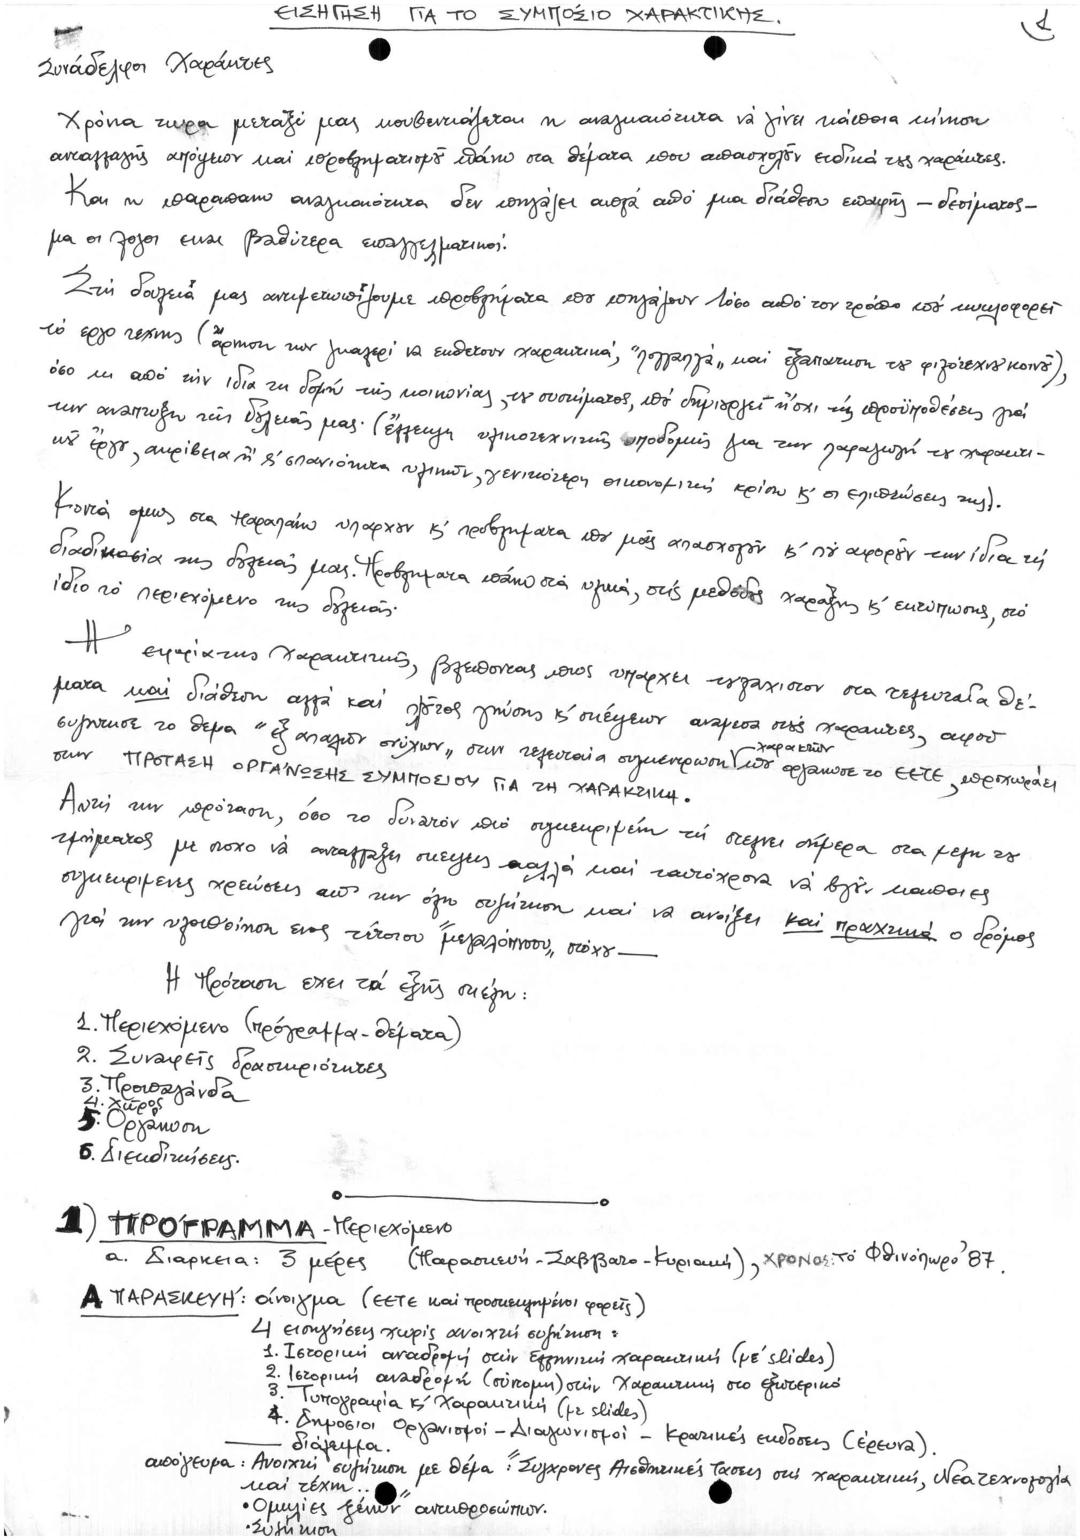 ΕΙΣΗΓΗΣΗ ΓΙΑ ΤΟ ΣΥΜΠΟΣΙΟ ΧΑΡΑΚΤΙΚΗΣ.
1
Συνάδελφοι Χαράκτες
Χρόνια τωρα μεταξύ μας κουβεντιάζεται η αναγκαιότητα νά γίνει κάποια κίνηση
ανταλλαγής απόψεων και προβληματισμού πάνω στα θέματα που απασχολούν ειδικά τους χαράκτες.
Και η παραπανω αναγκαιότητα δεν πηγάζει απλά από μια διάθεση επαφής – δεσίματος –
μα οι λογοι ειναι βαθύτερα επαγγελματικοί.
Στή δουλειά μας αντιμετωπίζουμε προβλήματα που πηγάζουν τόσο από τον τρόπο πού κυκλοφορεί
τό εργο τεχνης (άρνηση των γκαλερί να εκθετουν χαρακτικά, "λογγαλγά" και εξαπατηση του φιλότεχνου κοινού),
όσο κι από τήν ίδια τη δομή τής κοινωνίας, του συστήματος, πού δημιουργεί ή όχι τίς προϋποθέσεις γιά
την αναπτυξη τής δουλειάς μας. (έλλειψη υλικοτεχνικής υποδομής για την παραγωγή του χαρακτι-
κού έργου, ακρίβεια ή κ' σπανιότητα υλικών, γενικότερη οικονομική κρίση κ' οι επιπτώσεις της).
Κοντά ομως στα παραπάνω υπαρχουν κ' προβληματα που μάς απασχολούν κ' πού αφορούν την ίδια τη
διαδικασία της δουλειάς μας. Προβληματα πάνω στά υλικά, στίς μεθόδους χαραξης κ' εκτύπωσης, στό
ίδιο τό περιεχόμενο της δουλειάς.
Η εφορία της Χαρακτικής, βλεποντας πως υπαρχει τουλαχιστον στα τελευταία θέ-
ματα και διάθεση αλλά καί πλούτος γνώσης κ' σκέψεων αναμεσα στους χαρακτες, αφού
συζητησε το θεμα "εξ απαλων ονύχων" στην τελευταία συγκεντρωση χαρακτών που οργανωσε το ΕΕΤΕ, προχωράει
στην ΠΡΟΤΑΣΗ ΟΡΓΑΝΩΣΗΣ ΣΥΜΠΟΣΙΟΥ ΓΙΑ ΤΗ ΧΑΡΑΚΤΙΚΗ.
Αυτή την πρόταση, όσο το δυνατόν πιό συγκεκριμένη τή στελνει σήμερα στα μελη του
τμήματος με στοχο νά ανταλλαξει σκεψεις αλλά και ταυτόχρονα νά βγούν καποιες
συγκεκριμενες χρεώσεις απ' την όλη συζήτηση και να ανοίξει και πρακτικά ο δρόμος
γιά την υλοποίηση ενος τέτοιου "μεγαλόπνοου" στόχου —
Η πρόταση εχει τά εξής σκέλη:
1. Περιεχόμενο (πρόγραμμα-θέματα)
2. Συναφείς δραστηριότητες
3. Προπαγάνδα
4. Χώρος
5. Οργάνωση
6. Διεκδικήσεις.
1) ΠΡΟΓΡΑΜΜΑ - Περιεχόμενο
α. Διαρκεια: 3 μέρες (Παρασκευή - Σαββατο - Κυριακή), ΧΡΟΝΟΣ: τό Φθινόπωρο '87.
Α ΠΑΡΑΣΚΕΥΗ: άνοιγμα (ΕΕΤΕ και προσκεκλημένοι φορείς)
4 εισηγήσεις χωρίς ανοιχτή συζήτηση:
1. Ιστορική αναδρομή στήν Ελληνική χαρακτική (μέ slides)
2. Ιστορική αναδρομή (σύντομη) στήν Χαρακτική στο εξωτερικό
3. Τυπογραφία κ' Χαρακτική (με slides)
4. Δημοσιοι Οργανισμοί – Διαγωνισμοί – Κρατικές εκδόσεις (έρευνα).
διάλειμμα.
απόγευμα: Ανοιχτή συζήτηση με θέμα: "Σύγχρονες Αισθητικές Τασεις στη χαρακτική, Νεα τεχνολογία
και τέχνη..."
• Ομιλίες ξένων αντιπροσώπων.
• Συζήτηση